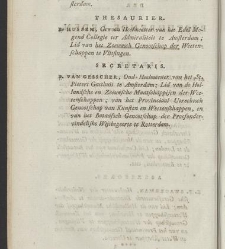 sterdam.
THESAURIER.
van het Edel Mogend Collegie ter Admiraliteit te Amsterdam; Lid van het Zeeuwsch Genootschap der Wetenschappen te Vlissingen.
SECRETARIS.
D. VAN GESSCHER, Oud-Hoofdmeester van het St. Pieters Gasthuis te Amsterdam; Lid van de Hollandsche en Zeeuwsche Maatschappijen der Wetenschappen; van het Provinciaal Utrechtsch Genootschap van Kunsten en Wetenschappen, en van het Bataafsch Genootschap der Proefondervindelijke Wijsbegeerte te Rotterdam.